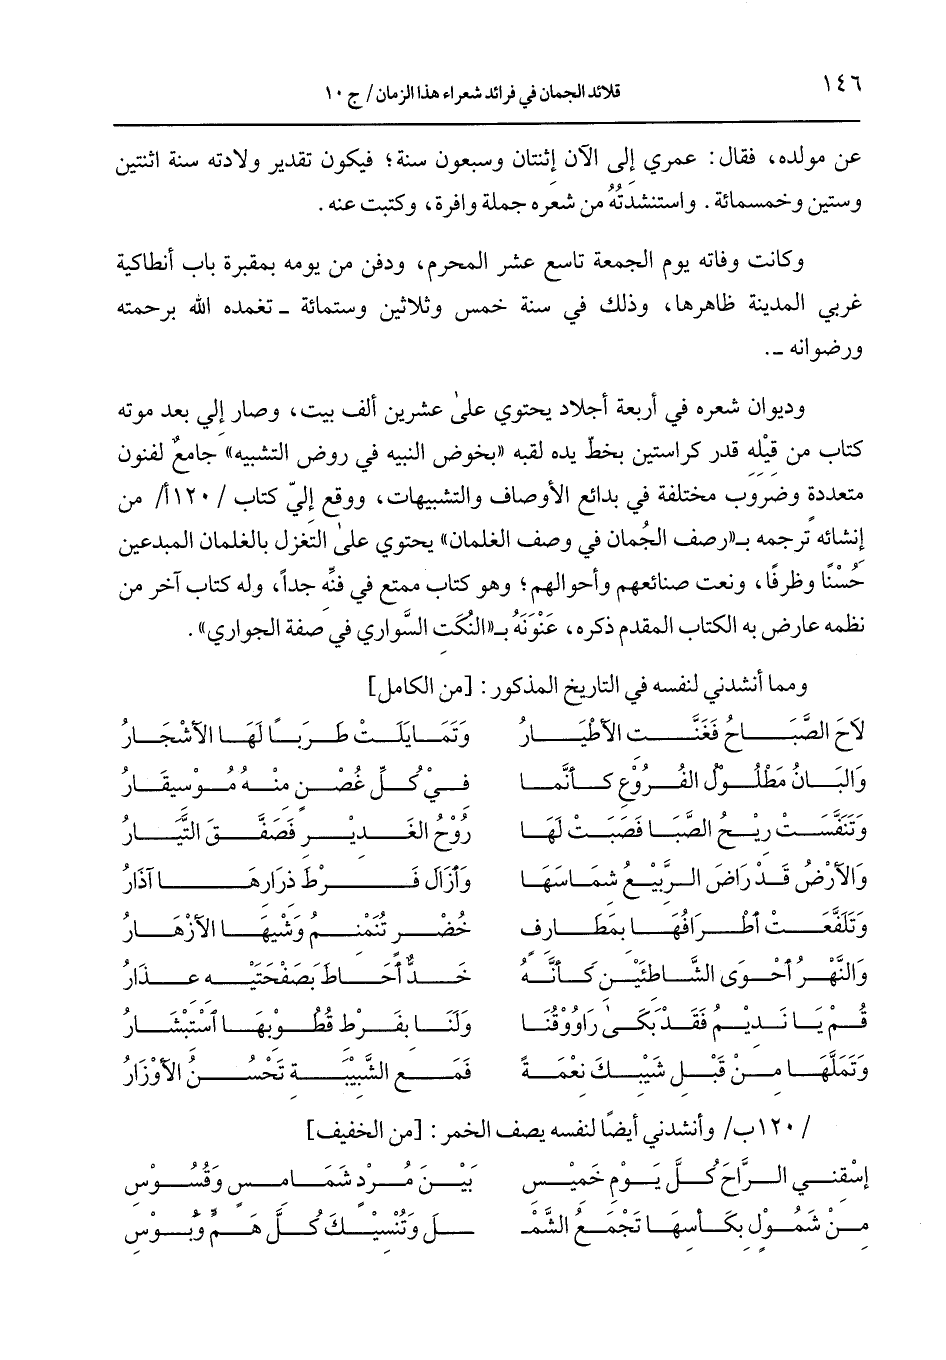 ١٤٦
قلائد الجمان في فرائد شعراء هذا الزمان/ ج ١٠
عن مولده، فقال: عمري إلى الآن إثنتان وسبعون سنة؛ فيكون تقدير ولادته سنة اثنتين
وستين وخمسمائة. واستنشدتُهُ من شعره جملة وافرة، وكتبت عنه.
وكانت وفاته يوم الجمعة تاسع عشر المحرم، ودفن من يومه بمقبرة باب أنطاكية
غربي المدينة ظاهرها، وذلك في سنة خمس وثلاثين وستمائة ـ تغمده الله برحمته
ورضوانه ـ.
وديوان شعره في أربعة أجلاد يحتوي علىٰ عشرين ألف بيت، وصار إلي بعد موته
كتاب من قِيْلِه قدر كراستين بخطّ يده لقبه «بخوض النبيه في روض التشبيه» جامعٌ لفنون
متعددة وضروب مختلفة في بدائع الأوصاف والتشبيهات، ووقع إليّ كتاب / ١٢٠أ/ من
إنشائه ترجمه بـ«رصف الجُمان في وصف الغلمان» يحتوي علىٰ التغزل بالغلمان المبدعين
حُسْنًا وظرفًا، ونعت صنائعهم وأحوالهم؛ وهو كتاب ممتع في فنّه جداً، وله كتاب آخر من
نظمه عارض به الكتاب المقدم ذكره، عَنْوَنَهُ بـ«النُكَت السَّواري في صفة الجواري».
ومما أنشدني لنفسه في التاريخ المذكور: [من الكامل]
لَاحَ الصَّبَاحُ فَغَنَّتِ الأَطْيَارُ وَتَمَايَلَتْ طَرَبًا لَهَا الأَشْجَارُ
وَالبَانُ مَطْلُولُ الفُرُوْعِ كَأَنَّمَا فِيْ كُلِّ غُصْنٍ مِنْهُ مُوْسِيقَارُ
وَتَنَفَّسَتْ رِيْحُ الصَّبَا فَصَبَتْ لَهَا رُوْحُ الغَدِيْرِ فَصَفَّقَ التَّيَارُ
وَالأَرْضُ قَدْ رَاضَ الرَّبِيْعُ شِمَاسَهَا وَأَزَالَ فَرْطَ ذِرَارِهَا آذَارُ
وَتَلَفَّعَتْ أَطْرَافُهَا بِمَطَارِفٍ خُضْرٍ تُنَمْنِمُ وَشْيَهَا الأَزْهَارُ
وَالنَّهْرُ أَحْوَى الشَّاطِئَيْنِ كَأَنَّهُ خَدٌّ أَحَاطَ بِصَفْحَتَيْهِ عِذَارُ
قُمْ يَا نَدِيْمُ فَقَدْ بَكَىٰ رَاوُوْقُنَا وَلَنَا بِفَرْطِ قُطُوْبِهَا اَسْتِبْشَارُ
وَتَمَلَّهَا مِنْ قَبْلِ شَيْبِكَ نِعْمَةً فَمَعَ الشَّبِيْبَةِ تَحْسُنُ الأَوْزَارُ
/ ١٢٠ب/ وأنشدني أيضًا لنفسه يصف الخمر: [من الخفيف]
إِسْقِنِي الرَّاحَ كُلَّ يَوْمِ خَمِيْسِ بَيْنَ مُرْدٍ شَمَامِسٍ وَقُسُوْسِ
مِنْ شَمُوْلٍ بِكَأْسِهَا تَجْمَعُ الشَّمْـ ـلَ وَتُنْسِيْكَ كُلَّ هَمٍّ وَبُوْسِ